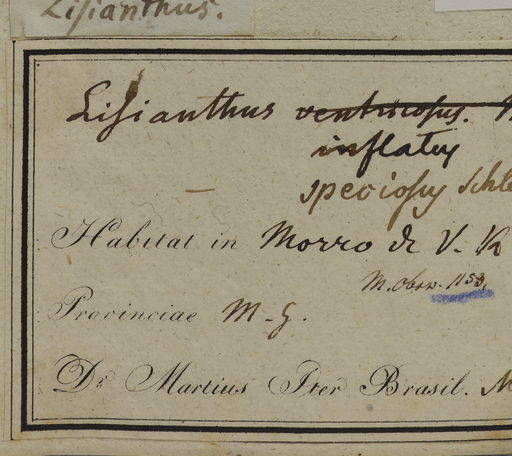 Lisianthus.
Lisianthus ventricosus.
inflatus
speciosus Schle
Habitat in Morro de V. R
M. Obs. 1153.
Provinciae M. G.
Dr. Martius Iter Brasil. M